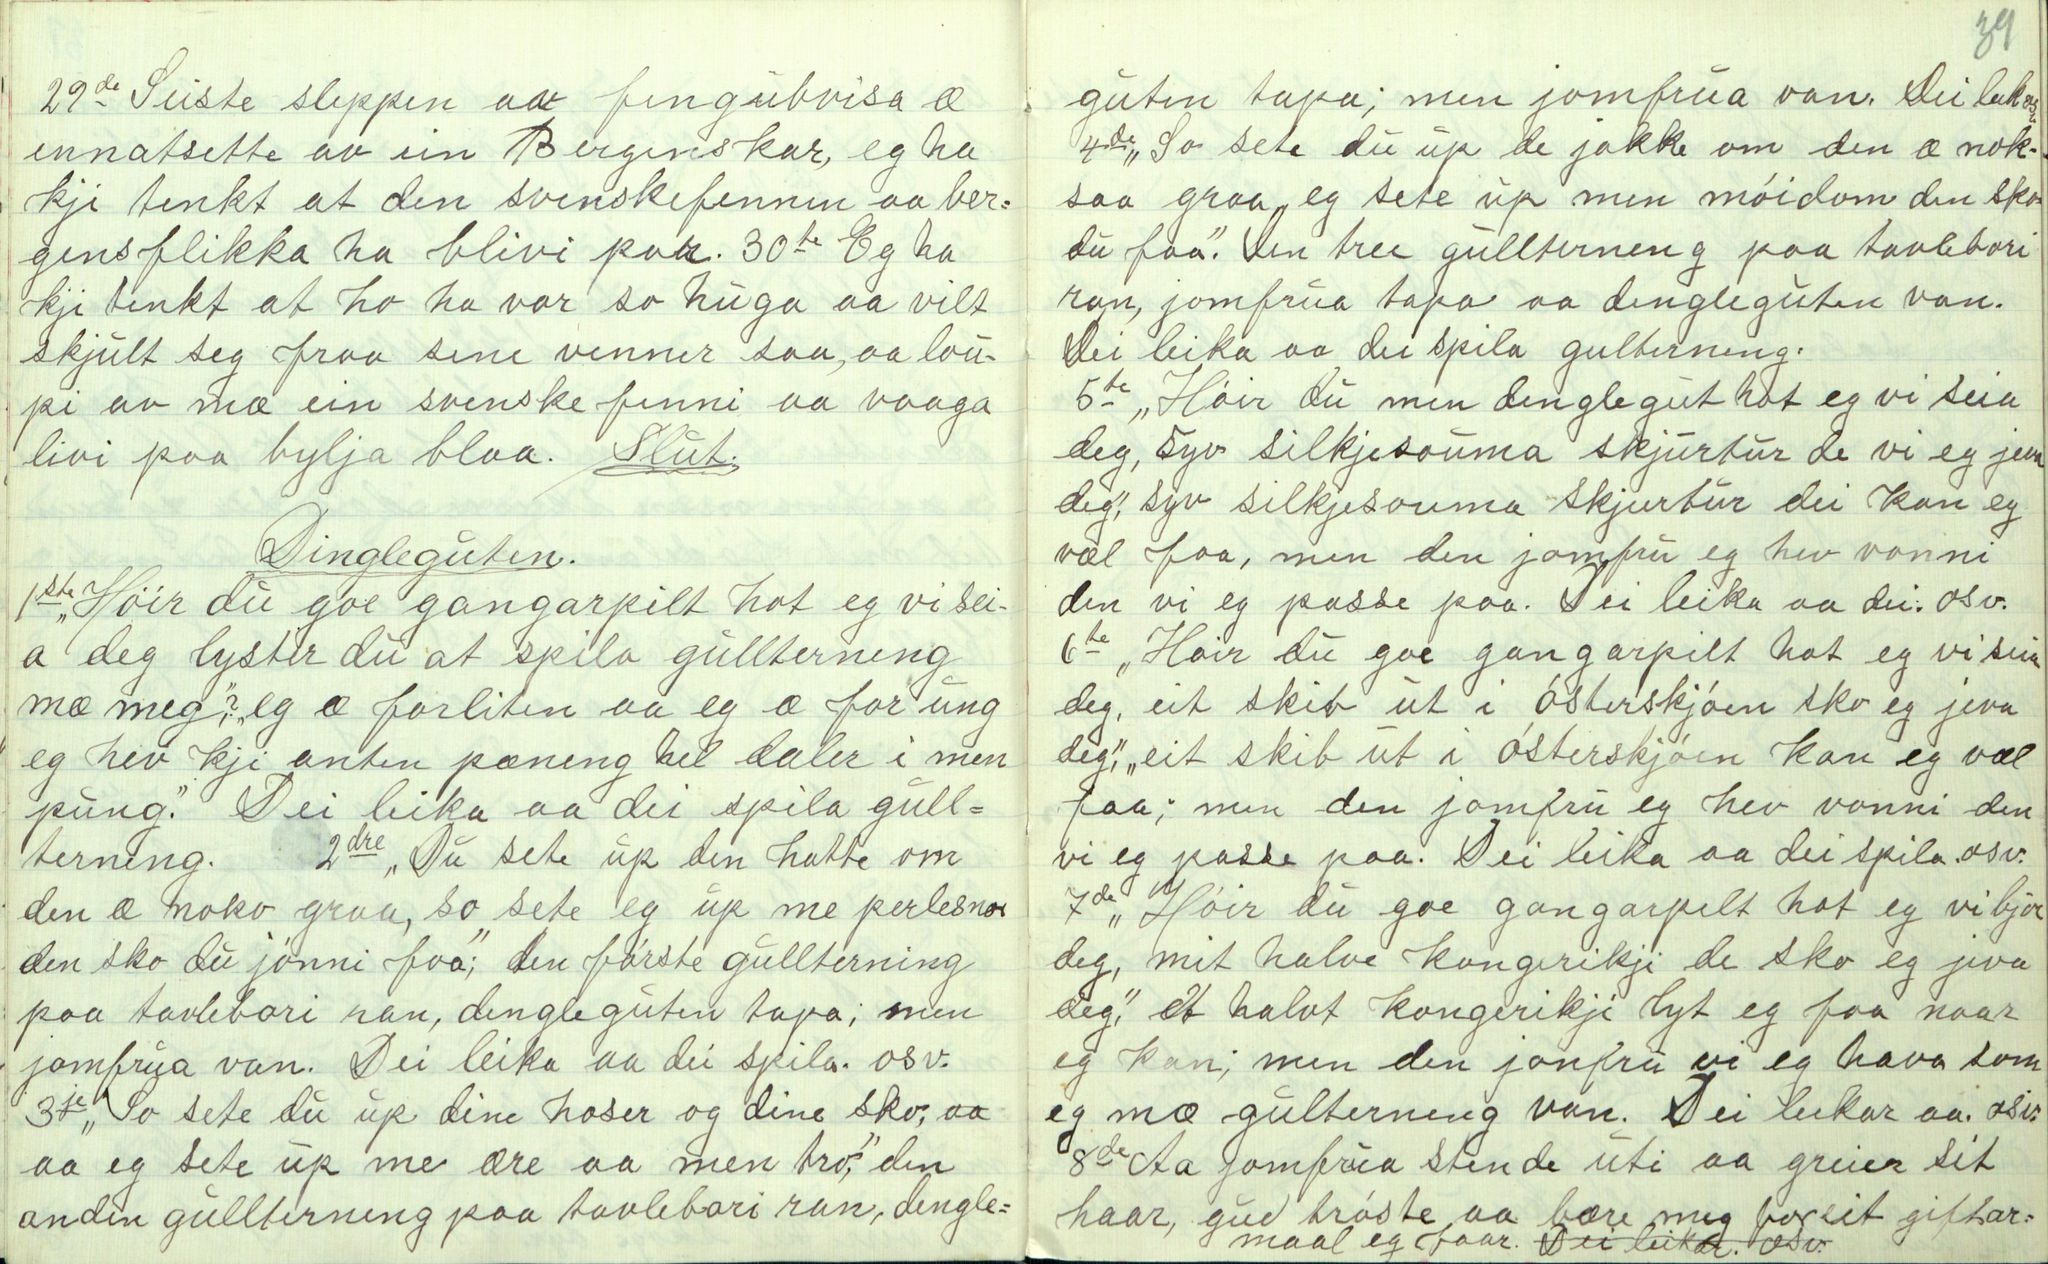 29de Seiste sleppen aat fengübvisa æ
ennatsette av ein Bergenskar, eg ha
kji tenkt at den svenskefennin aa ber=
gensflikka ha blivi paar. 30te Eg ha
kji tenkt at ho ha var so hüga aa vilt
skjült seg fraa sene venner saa, aa lou-
pi av mæ ein svenske fenni aa vaaga
livi paa bylja blaa. Slüt.
Dinglegüten.
1ste „Höir dü goe gangarpilt hot eg vi sei-
a deg lyster dü at spila güllterneng
mæ meg"? „eg æ forliten aa eg æ for üng
eg hev kji anten pæneng hel daler i men
püng." Dei leika aa dei spila güll=
terneng. 2dre „Dü sete üp den hatte om
den æ noko graa, so sete eg üp me perlesnor
den sko dü jönni faa"; den förste güllterning
paa tavlebori ran, denglegüten tapa; men
jomfrüa van. Dei leika aa dei spila. osv.
3je „So sete dü üp dine hoser og dine sko, aa
aa eg sete üp me ære aa men tro," den
anden güllterneng paa tavlebori ran, dengle=
39
güten tapa; men jomfrüa van. Dei leika osv.
4de „So sete dü üp de jakke om den æ nok-
saa graa, eg sete üp men möidom den sko
dü faa". Den tree güllterneng paa tavlebori
ran, jomfrüa tapa aa denglegüten van.
Dei leika aa dei spila gulterneng.
5te „Höir dü men denglegüt hot eg vi seia
deg, syv silkjesoüma skjürtür de vi eg jeva
deg", syv silkjesouma skjurtür dei kan eg
væl faa, men den jomfrü eg hev vonni
den vi eg passe paa. Dei leika aa dei. osv.
6te „Höir dü goe gangarpilt hot eg vi seia
deg, eit skib üt i österskjöen sko eg jeva
deg", „eit skib üt i österskjöen kan eg væl
faa; men den jomfrü eg hev vonni den
vi eg passe paa. Dei leika aa dei spila. osv.
7de „Höir dü goe gangarpilt hot eg vi bjoe
deg, mit halve kongerikji de sko eg jeva
deg", et halvt kongerikji lyt eg faa naar
eg kan; men den jonfrü vi eg hava som
eg mæ gülterneng van. Dei leikar aa. osv.
8de Aa jomfrüa stende üti aa greier sit
haar, güd tröste aa bære meg for eit giftar=
maal eg faar. Dei leikar. osv.